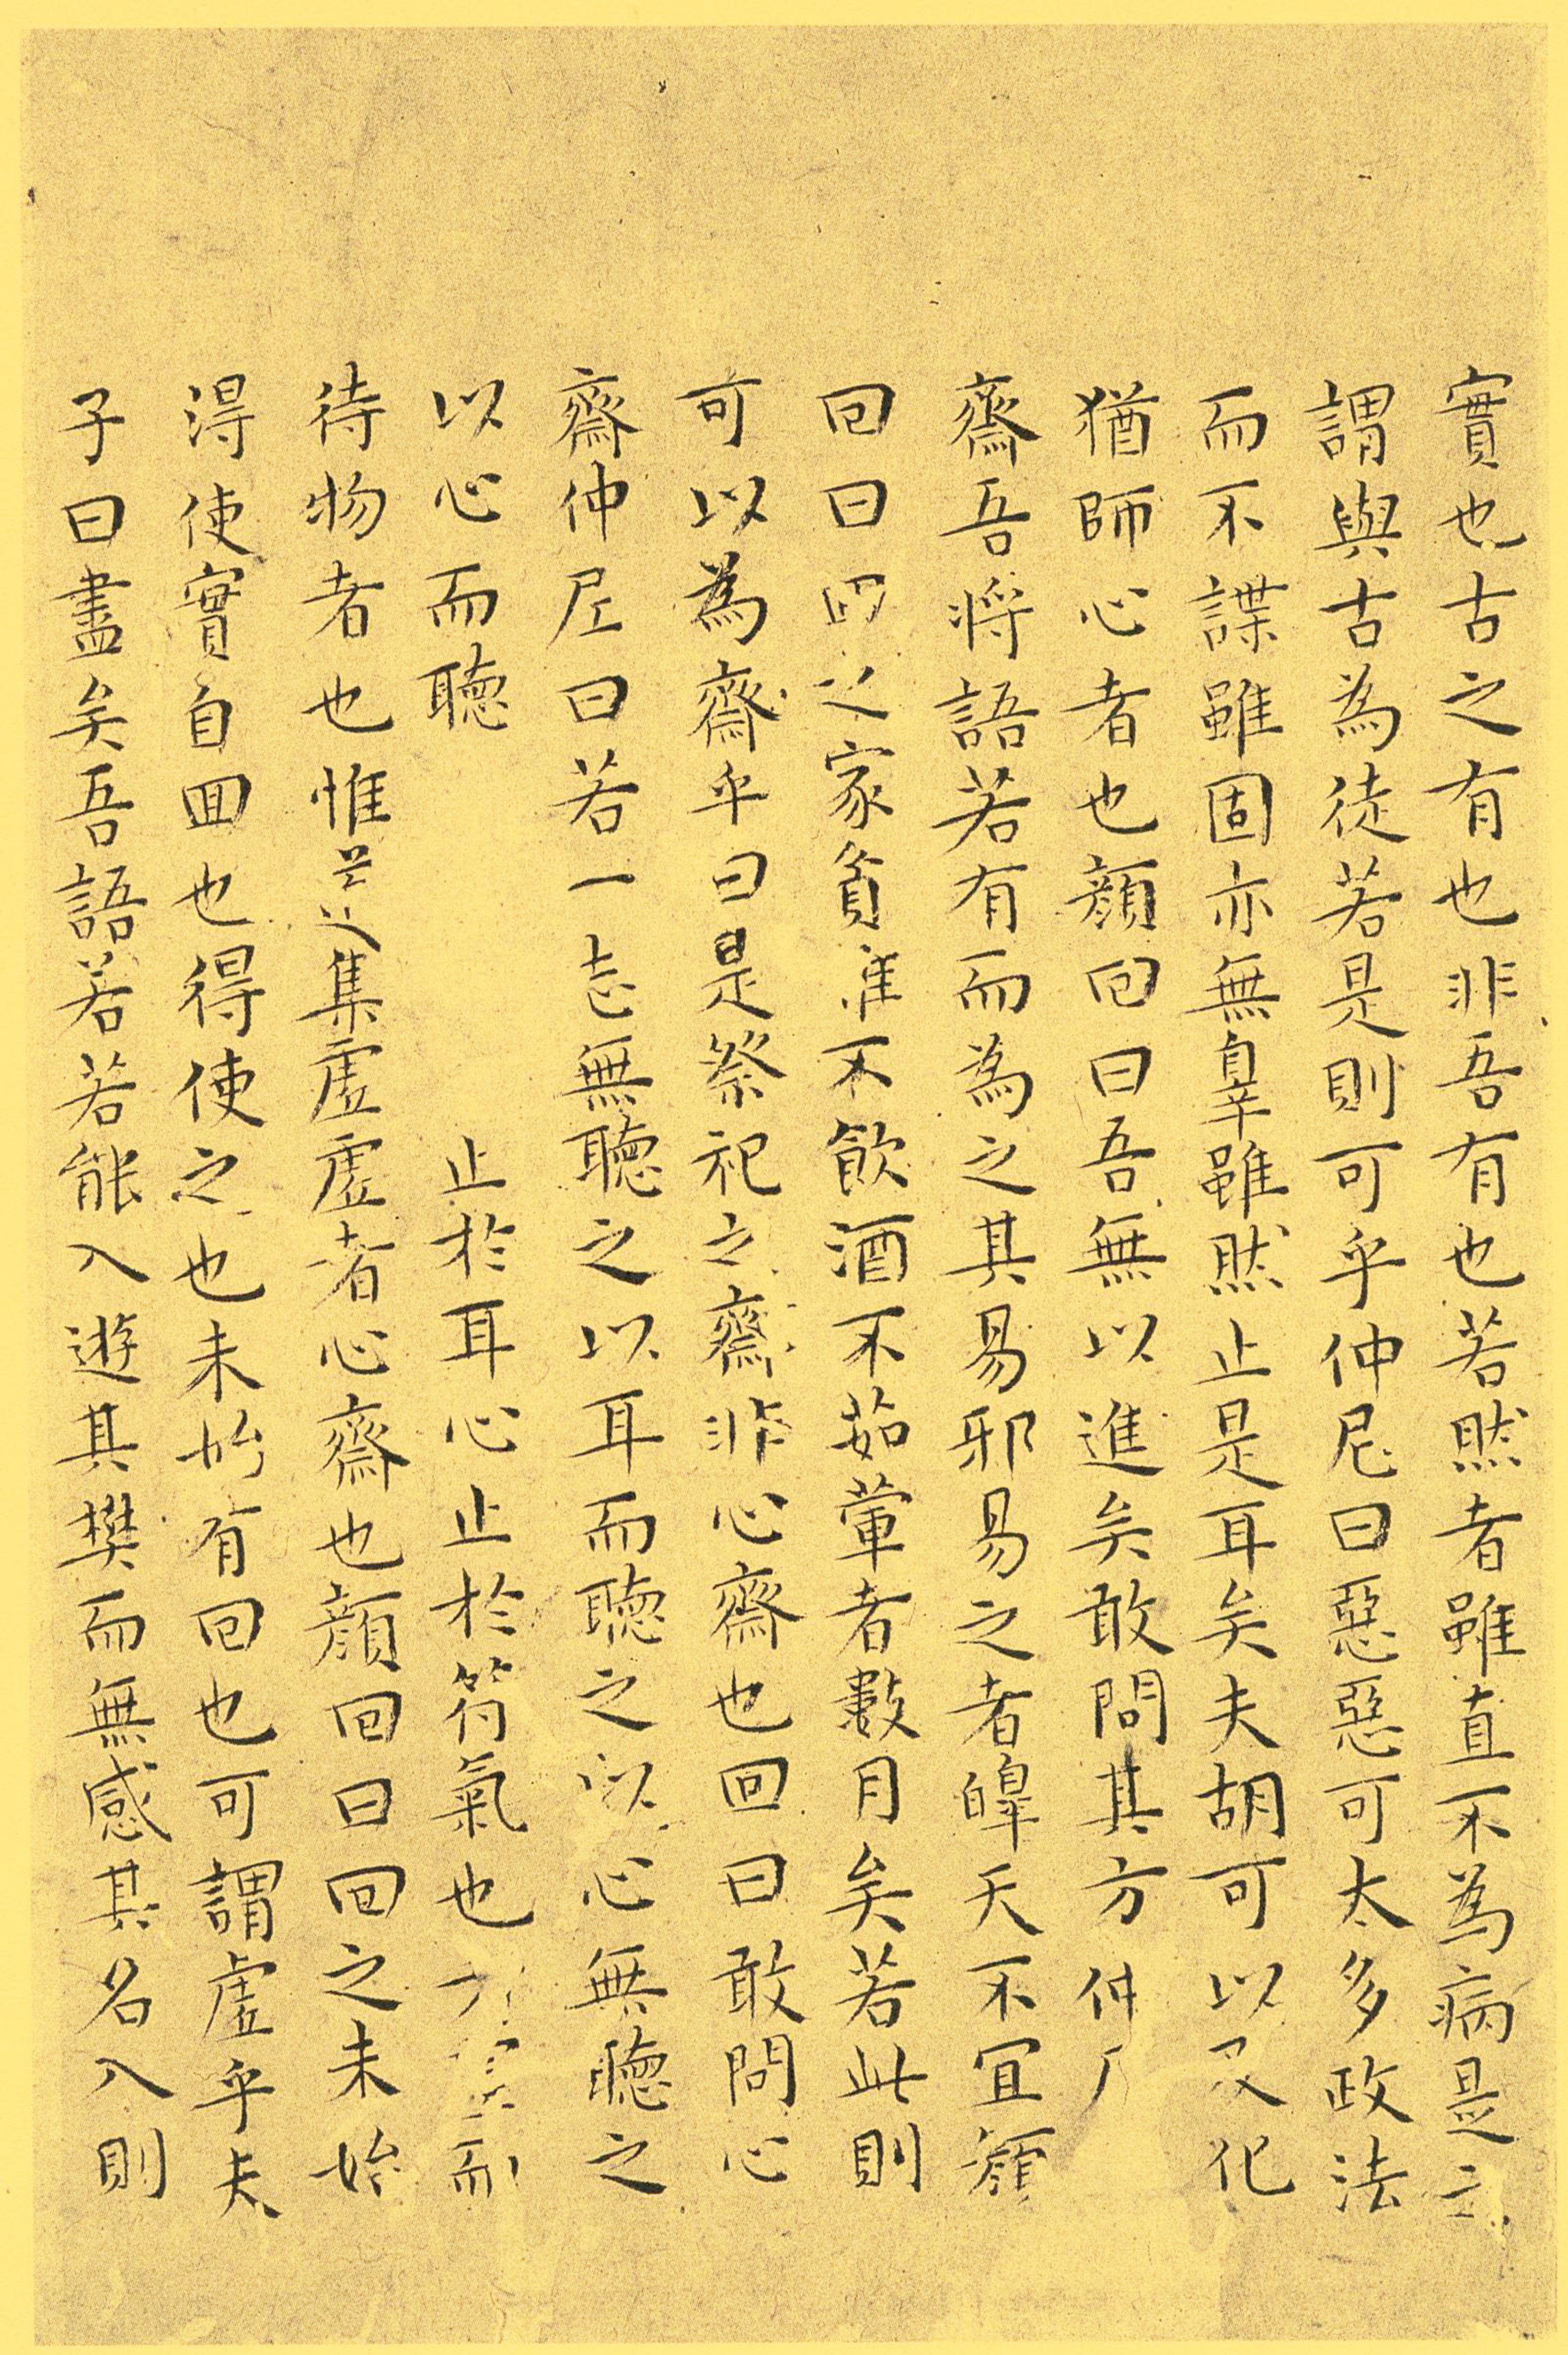 實也古之有也非吾有也若然者雖直不為病是之
謂與古為徒若是則可乎仲尼曰惡惡可太多政法
而不諜雖固亦無辠雖然止是耳矣夫胡可以及化
猶師心者也顏回曰吾無以進矣敢問其方仲
齋吾將語若有而為之其易邪易之者皞天不宜顏
回曰回之家貧唯不飲酒不茹葷者數月矣若此則
可以為齋乎曰是祭祀之齋非心齋也回曰敢問心
齋仲尼曰若一志無聽之以耳而聽之以心無聽之
以心而聽 止於耳心止於符氣也 而
待物者也惟 集虛虛者心齋也顏回曰回之未始
得使實自回也得使之也未始有回也可謂虛乎夫
子曰盡矣吾語若若能入遊其樊而無感其名入則